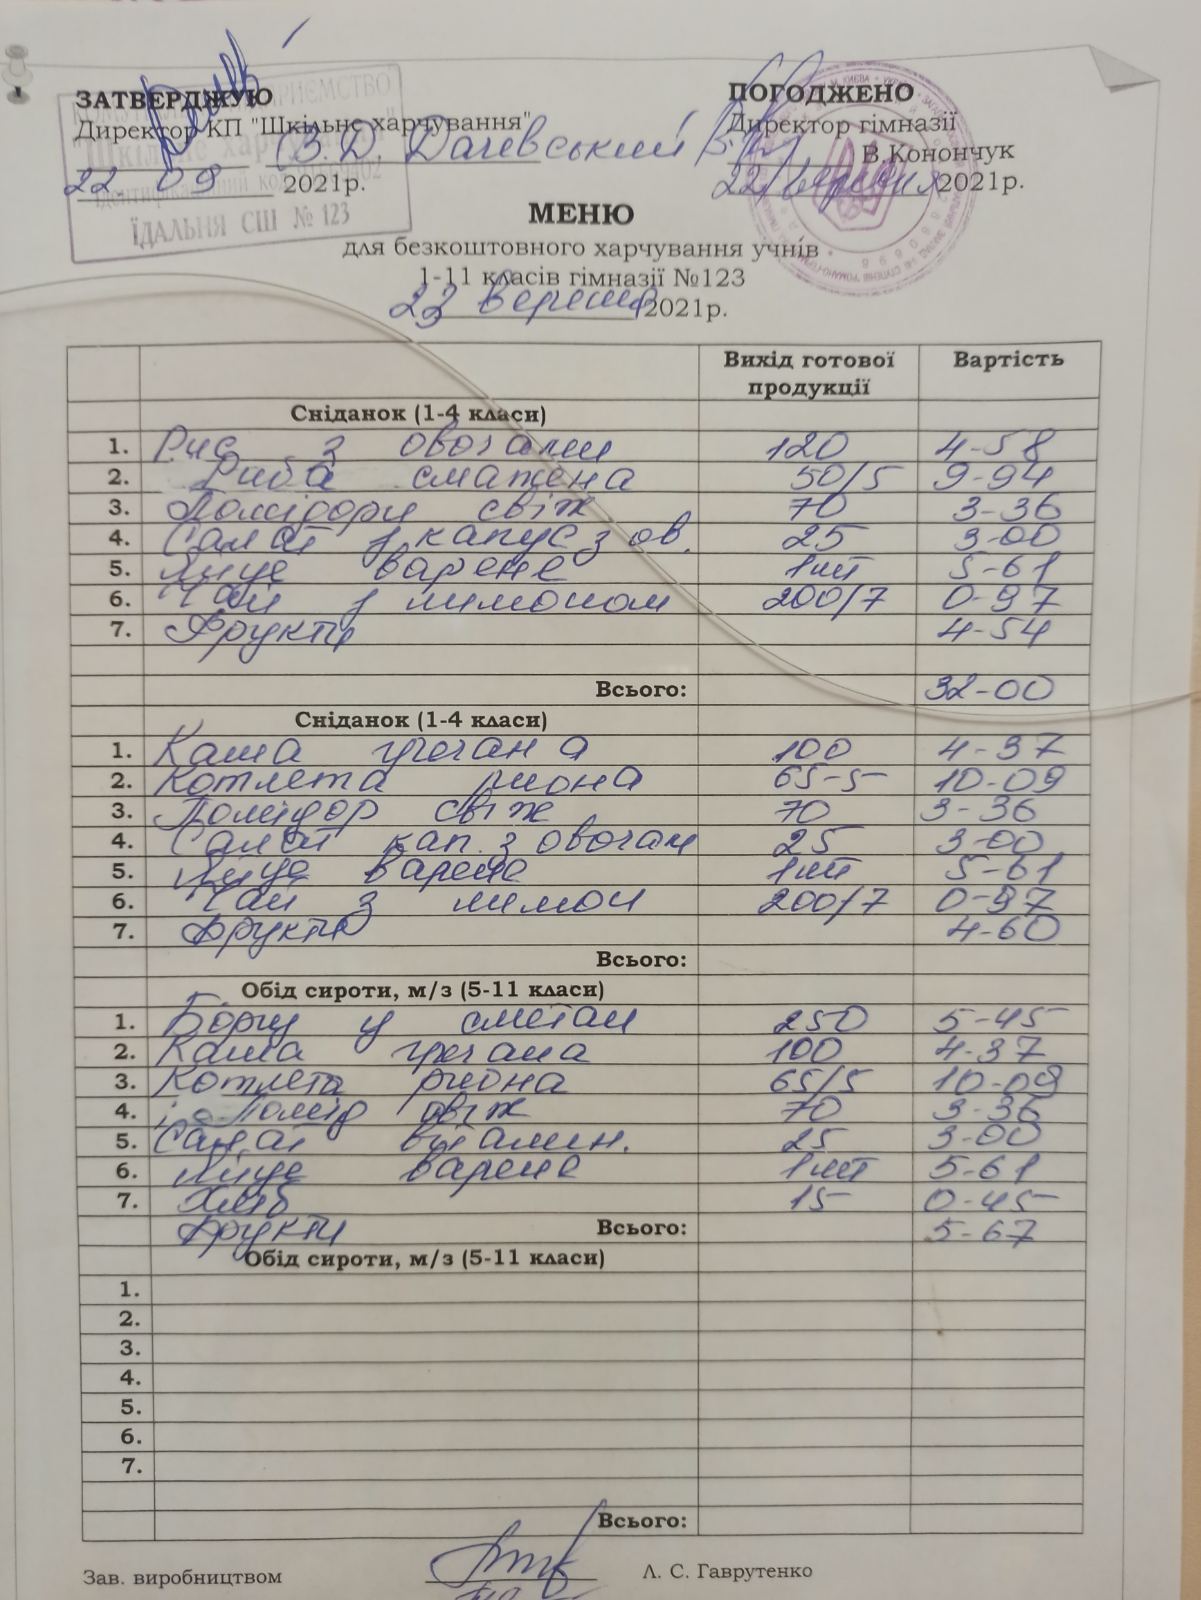 ЗАТВЕРДЖУЮ
Директор КП "Шкільне харчування"
В.Д. Дачевський
22. 09 2021р.
Шкільне харчування
ЇДАЛЬНЯ СШ № 123
ПОГОДЖЕНО
Директор гімназії
В.Конончук
22 вересня 2021р.
МЕНЮ
для безкоштовного харчування учнів
1-11 класів гімназії №123
23 вересня 2021р.
Вихід готової продукції Вартість
Сніданок (1-4 класи)
1. Рис з овочами 120 4-58
2. Риба смажена 50/5 9-94
3. Помідори свіж 70 3-36
4. Салат з капус з ов. 25 3-00
5. Яйце варене 1шт 5-61
6. Чай з лимоном 200/7 0-97
7. Фрукти 4-54
Всього: 32-00
Сніданок (1-4 класи)
1. Каша гречана 100 4-37
2. Котлета рибна 65-5 10-09
3. Помідор свіж 70 3-36
4. Салат кап. з овочам 25 3-00
5. Яйце варене 1шт 5-61
6. Чай з лимон 200/7 0-97
7. Фрукти 4-60
Всього:
Обід сироти, м/з (5-11 класи)
1. Борщ у сметан 250 5-45
2. Каша гречана 100 4-37
3. Котлета рибна 65/5 10-09
4. Помід свіж 70 3-36
5. Салат вітамин. 25 3-00
6. Яйце варене 1шт 5-61
7. Хліб 15 0-45
Фрукти Всього: 5-67
Обід сироти, м/з (5-11 класи)
1.
2.
3.
4.
5.
6.
7.
Всього:
Зав. виробництвом Л. С. Гаврутенко